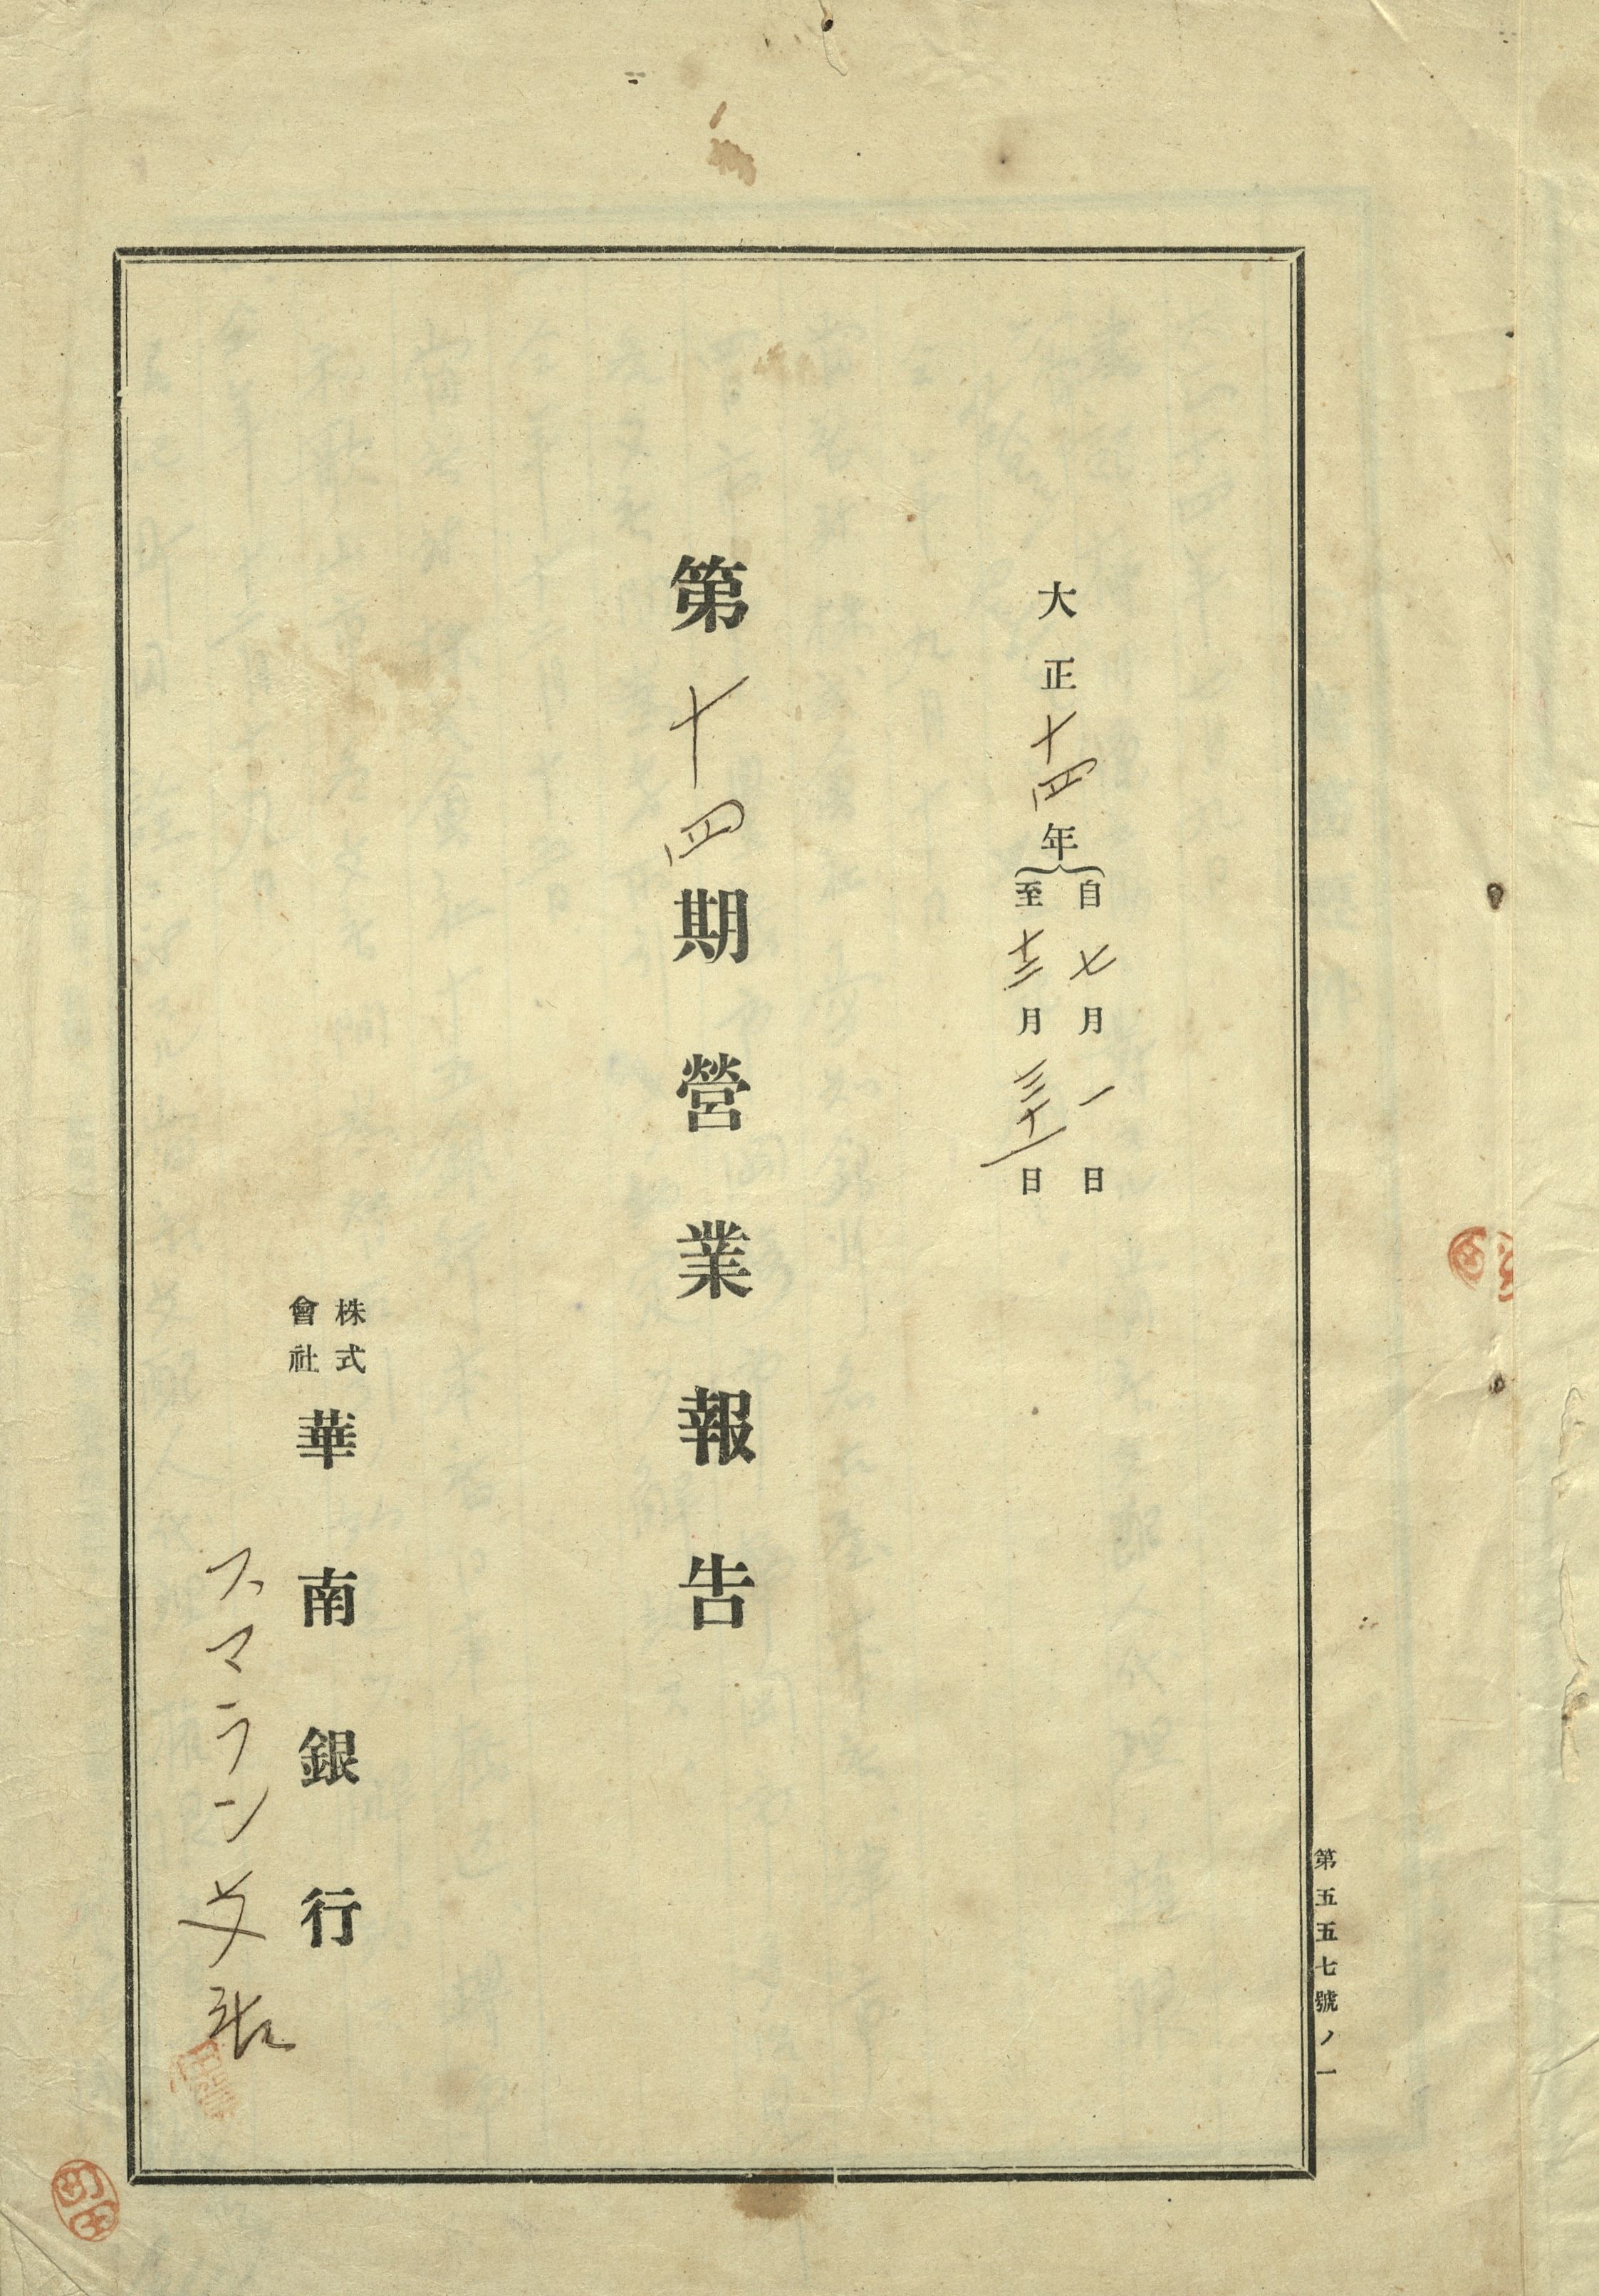 第五五七號ノ一
大正十四年
自七月一日
至十二月三十一日
第十四期營業報告
株式會社華南銀行
スマラン支店